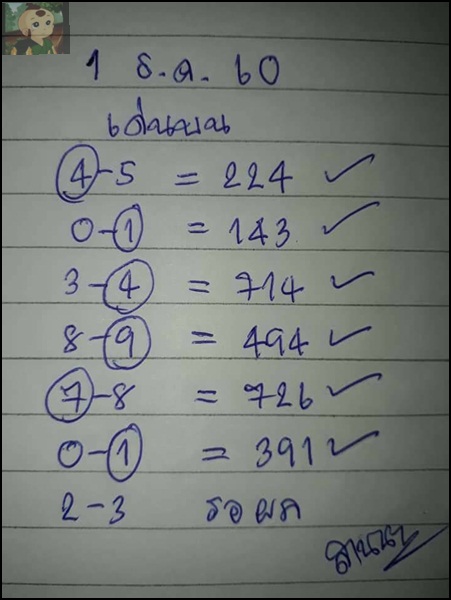 1 ธ.ค. 60
เด่นบน
4-5 = 224 ✓
0-1 = 143 ✓
3-4 = 714 ✓
8-9 = 494 ✓
7-8 = 726 ✓
0-1 = 391 ✓
2-3 รอผล